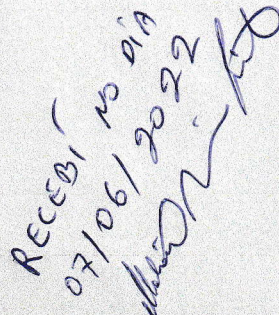 RECEBÍ NO DÍA
07/06/2022